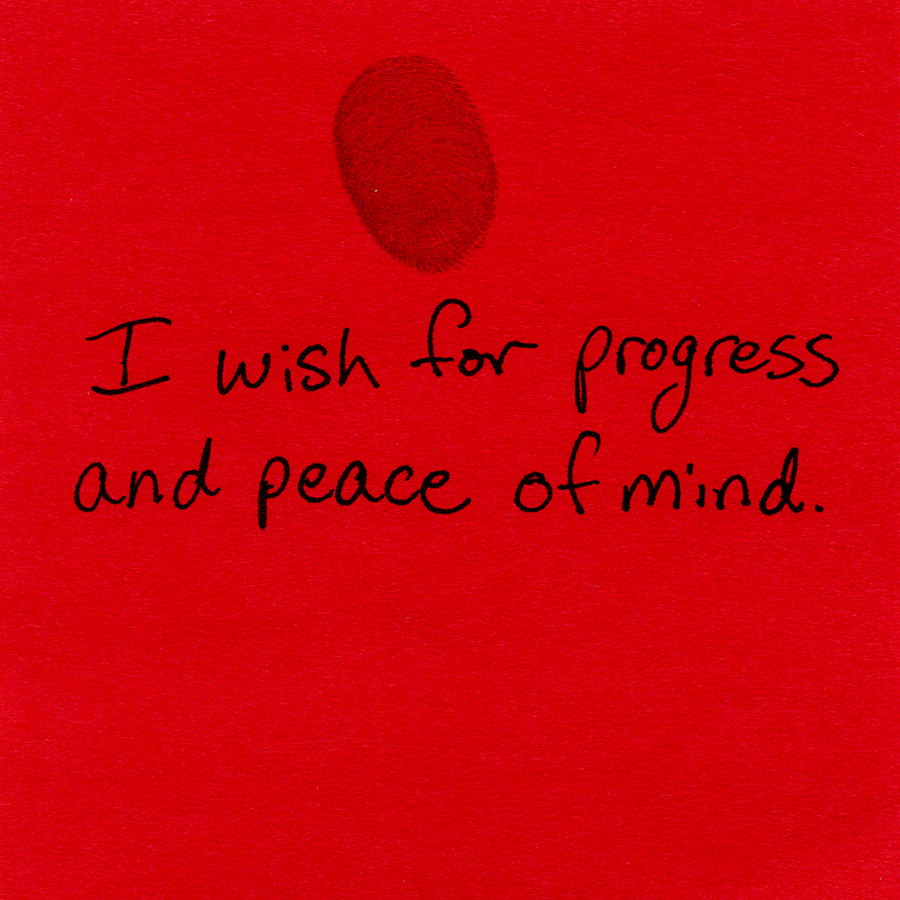 I wish for progress
and peace of mind.